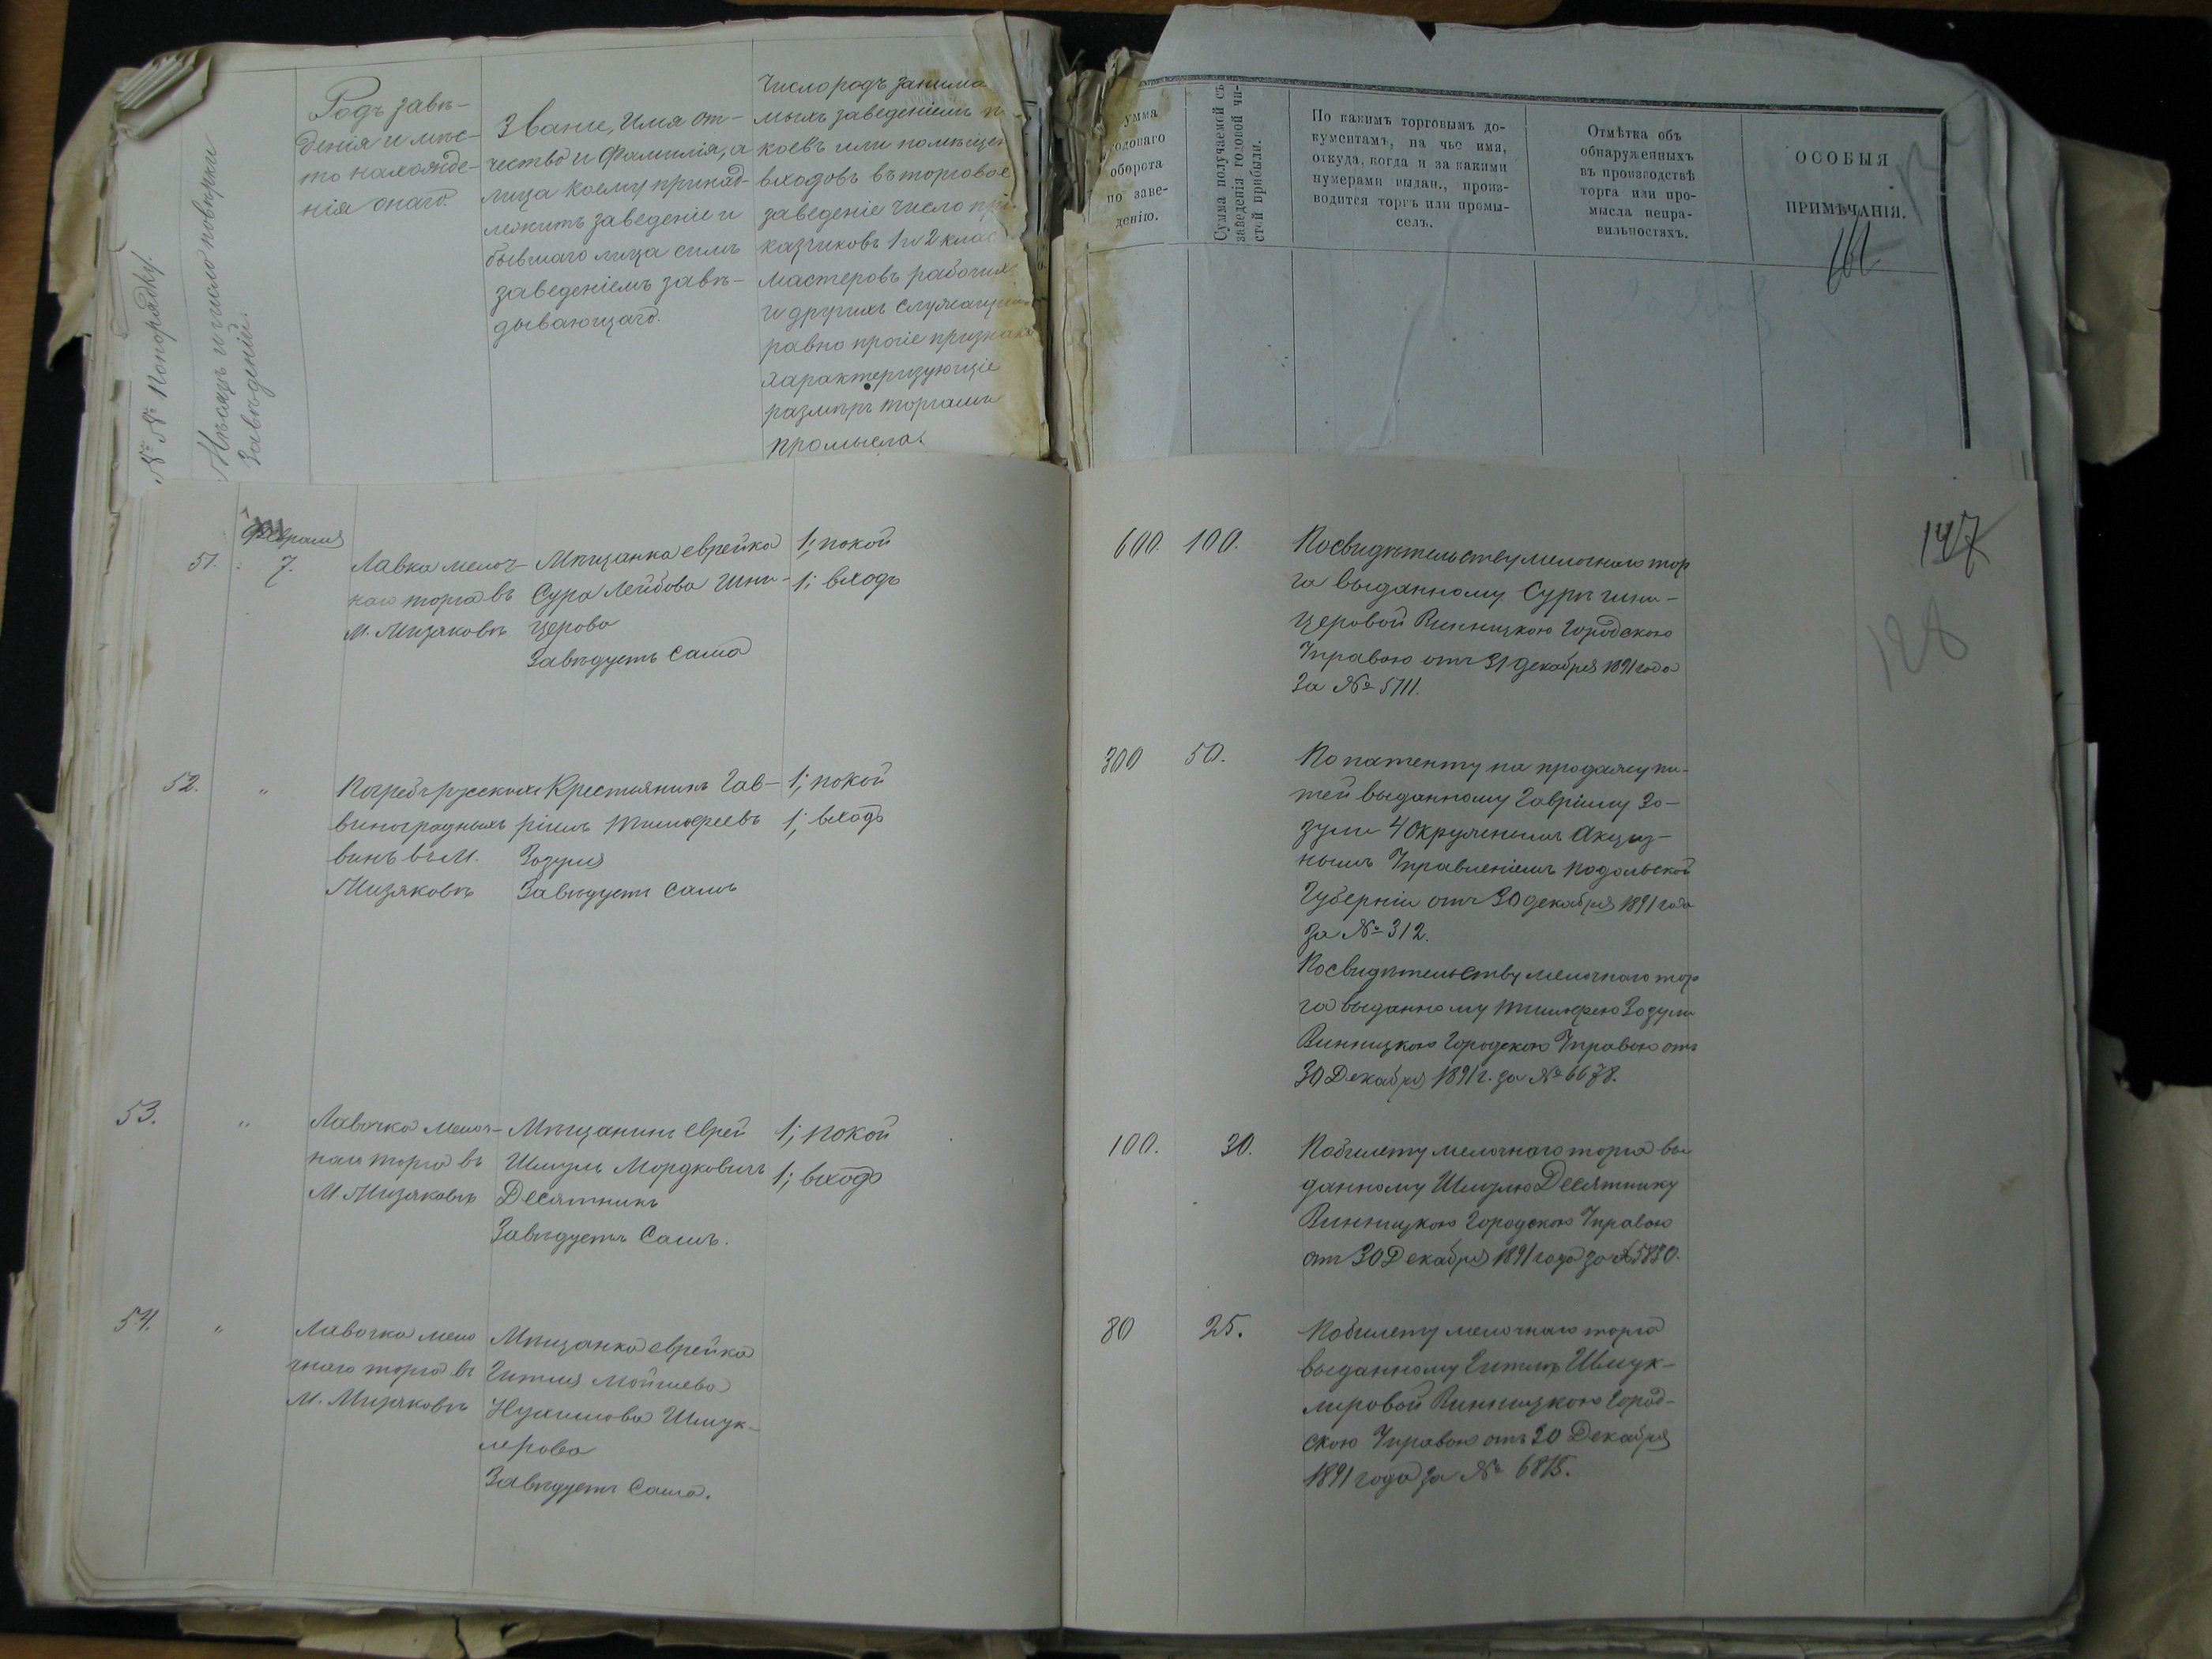 № № По порядку.
Мѣсяцъ и число повѣрки
Заведеній.
Родъ заве-
денія и мѣс-
то нахожде-
нія онаго.
Званіе, Имя от-
чество и Фамилія, а
лица коему принад-
лежитъ заведеніе и
бывшаго лица симъ
заведеніемъ завѣ-
дывающаго.
Число родъ занима
мыхъ заведеніемъ п
коевъ или помѣщен
входовъ въ торговое
заведеніе число при
казчиковъ 1 и 2 клас
мастеровъ рабочихъ
и другихъ служащихъ
равно прочіе признаки
характеризующіе
размѣръ торга или
промысла.
умма
годоваго
оборота
по заве-
денію.
Сумма получаемой съ
заведенія годовой чи-
стой прибыли.
По какимъ торговымъ до-
кументамъ, на чье имя,
откуда, когда и за какими
нумерами выдан., произ-
водится торгъ или промы-
селъ.
Отмѣтка объ
обнаруженныхъ
въ производствѣ
торга или про-
мысла непра-
вильностяхъ.
ОСОБЫЯ
ПРИМѢЧАНІЯ.
147
128
Февраля
51. 7.
Лавка мелоч-
наго торга въ
М. Мизяковѣ
Мѣщанка еврейка
Сура Лейбова Шни-
церова
Завѣдуетъ сама
1; покой
1; входъ
600. 100.
По свидѣтельству мелочнаго тор
га выданному Сурѣ Шни-
церовой Винницкою Городскою
Управою отъ 31 декабря 1891 года
За № 5711.
52. "
Погребъ русскихъ
виноградныхъ
винъ въ М.
Мизяковѣ
Крестьянинъ Гав-
ріилъ Тимофеевъ
Зозуля
Завѣдуетъ самъ
1; покой
1; входъ
300 50.
По патенту на продажу пи-
тей выданному Гавріилу Зо-
зули 4 Окружнымъ Акциз-
нымъ Управленіемъ Подольской
Губерніи отъ 30 декабря 1891 года
за № 312.
По свидѣтельству мелочнаго тор
га выданному Тимофею Зозули
Винницкою Городскою Управою отъ
30 Декабря 1891 г. за № 6678.
53. "
Лавочка мелоч-
наго торга въ
М. Мизяковѣ
Мѣщанинъ еврей
Шмуль Мордковичъ
Десятникъ
Завѣдуетъ Самъ.
1; покой
1; входъ
100. 30.
По билету мелочнаго торга вы
данному Шмулю Десятнику
Винницкою Городскою Управою
отъ 30 Декабря 1891 года за № 5830.
54. "
Лавочка мело
чнаго торга въ
М. Мизяковѣ
Мѣщанка еврейка
Гитля Мойшева
Нухимова Шмук-
лерова
Завѣдуетъ Сама.
80 25.
По билету мелочнаго торга
выданному Гитлѣ Шмук-
леровой Винницкою Город-
скою Управою отъ 20 Декабря
1891 года за № 6815.